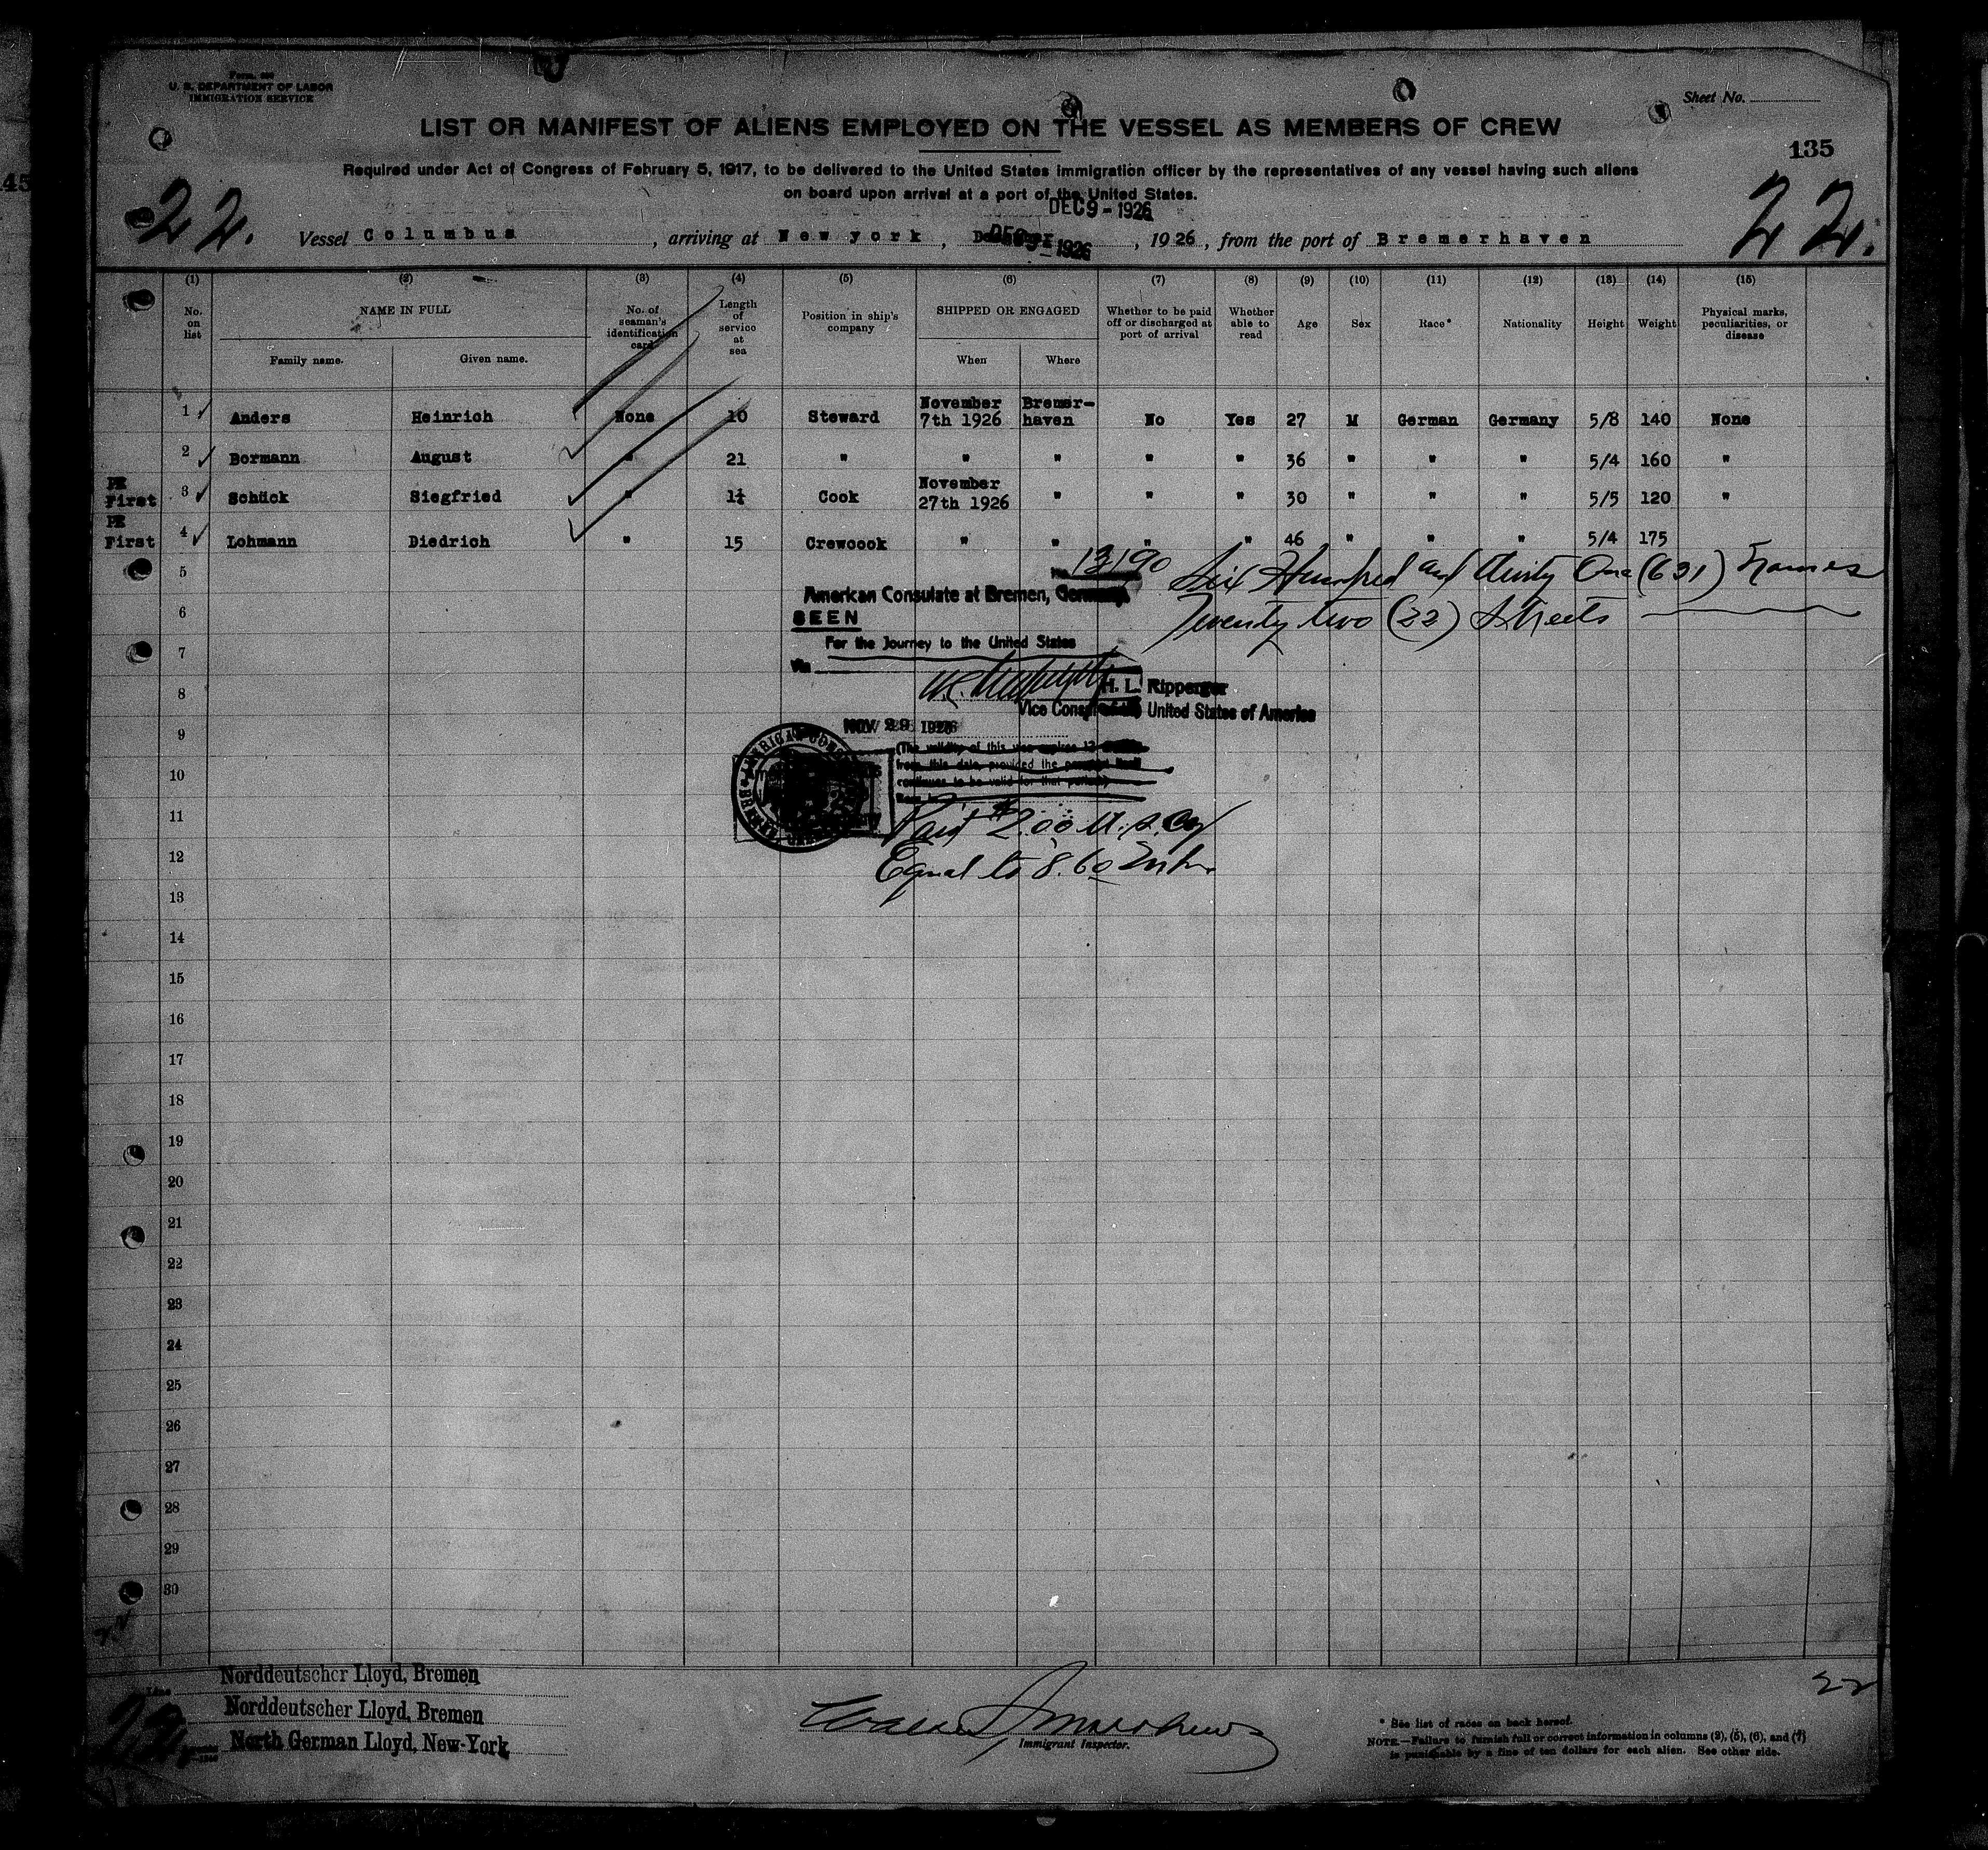 Form 680
U. S. DEPARTMENT OF LABOR
IMMIGRATION SERVICE
Sheet No.
LIST OR MANIFEST OF ALIENS EMPLOYED ON THE VESSEL AS MEMBERS OF CREW
135
45
Required under Act of Congress of February 5, 1917, to be delivered to the United States immigration officer by the representatives of any vessel having such aliens
on board upon arrival at a port of the United States.
DEC 9 - 1926
22. 22.
Vessel Columbus, arriving at New York, DEC 9 - 1926, 1926, from the port of Bremerhaven
(1) (2) (3) (4) (5) (6) (7) (8) (9) (10) (11) (12) (13) (14) (15)
No. on list
NAME IN FULL
Family name. Given name.
No. of seaman's identification card
Length of service at sea
Position in ship's company
SHIPPED OR ENGAGED
When Where
Whether to be paid off or discharged at port of arrival
Whether able to read
Age
Sex
Race*
Nationality
Height
Weight
Physical marks, peculiarities, or disease
1 Anders Heinrich None 10 Steward November 7th 1926 Bremer-haven No Yes 27 M German Germany 5/8 140 None
2 Bormann August " 21 " " " " " 36 " " " 5/4 160 "
PR First 3 Schück Siegfried " 1¼ Cook November 27th 1926 " " " 30 " " " 5/5 120 "
PR First 4 Lohmann Diedrich " 15 Crewcook " " " " 46 " " " 5/4 175
5
13190
Six Hundred and thirty One (631) Names
American Consulate at Bremen, Germany
6
SEEN
Twenty two (22) Sheets
For the Journey to the United States
7
Via
8
H. L. Ripperger
Vice Consul of the United States of America
NOV 29 1926
9
(The validity of this visa expires 12
from this date, provided the passport itself
10
continues to be valid for that period)
11
Paid $2.00 U.S. Cy
12
Equal to 8.60
13
14
15
16
17
18
19
20
21
22
23
24
25
26
27
28
29
30
Line
Norddeutscher Lloyd, Bremen
Norddeutscher Lloyd, Bremen
North German Lloyd, New-York
22
Immigrant Inspector.
22
* See list of races on back hereof.
NOTE.—Failure to furnish full or correct information in columns (2), (5), (6), and (7)
is punishable by a fine of ten dollars for each alien. See other side.